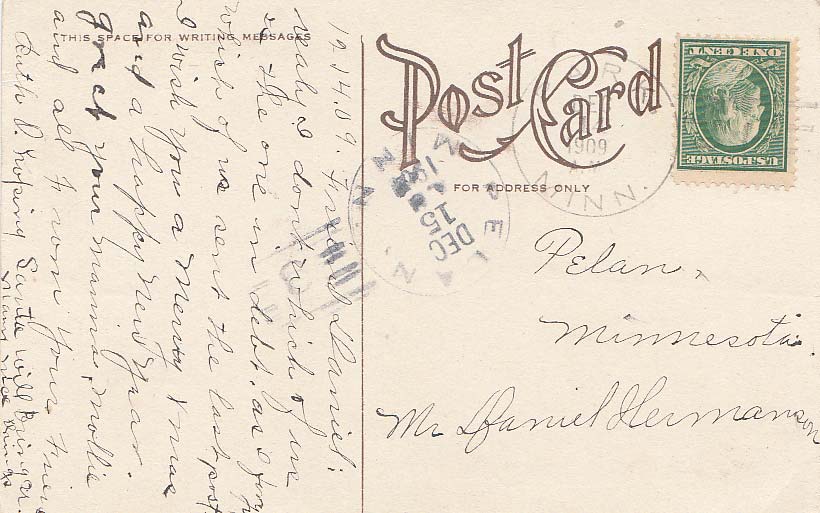 THIS SPACE FOR WRITING MESSAGES
Post Card
FOR ADDRESS ONLY
12.14.09. Friend Daniel:
realy I don't which of us
is the one in debt, as I
which of us sent the last post
I wish you a Merry Xmas
and a happy New Year.
Greet your mamma, Mollie
and all from your Friend
Ruth P. Hoping Santa will bring u.
many nice things
Pelan,
Minnesota.
Mr Daniel Hermanson
1909
MINN.
PELAN
DEC
15
MINN.
U.S. POSTAGE
ONE CENT